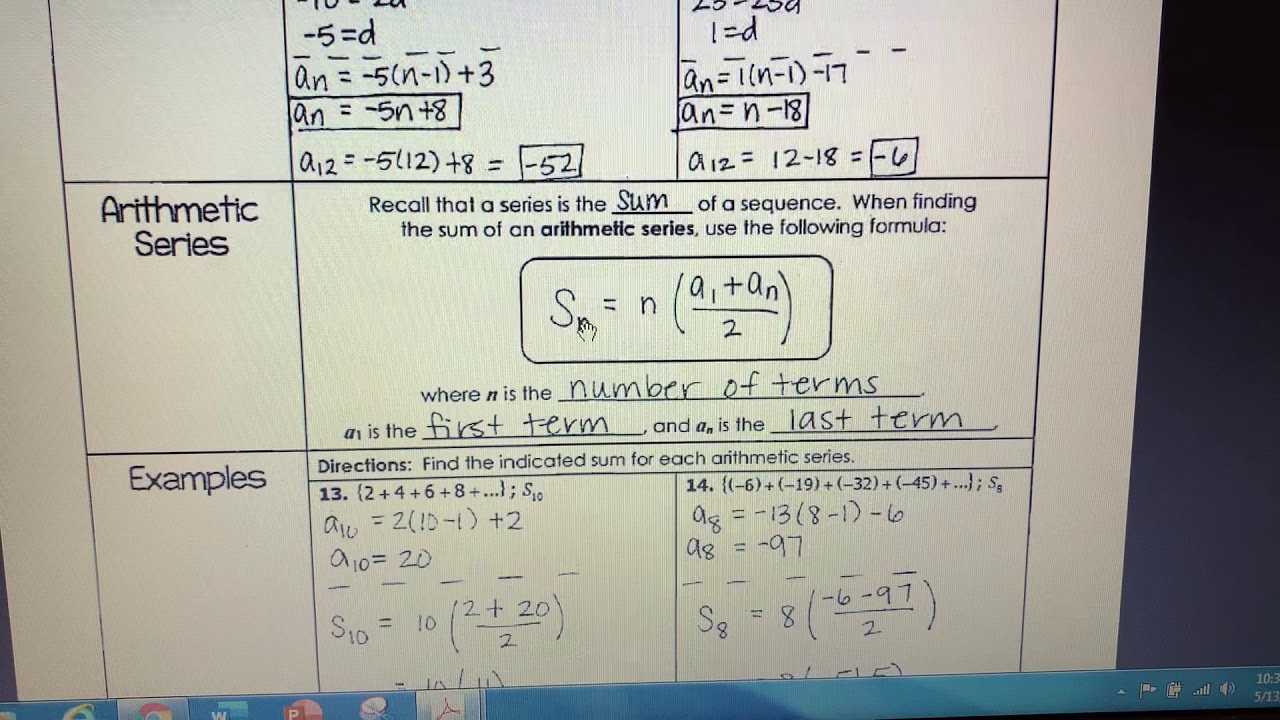 -10 = 2d
-5=d
an = -5(n-1)+3
an = -5n+8
a12 = -5(12)+8 = -52
1=d
an=1(n-1)-17
an= n-18
a12 = 12-18 = -6
Arithmetic
Series
Recall that a series is the sum of a sequence. When finding
the sum of an arithmetic series, use the following formula:
Sn = n (a1+an/2)
where n is the number of terms.
a1 is the first term, and an is the last term.
Examples
Directions: Find the indicated sum for each arithmetic series.
13. {2+4+6+8+...}; S10
a10 = 2(10-1)+2
a10= 20
S10 = 10 (2+20/2)
14. {(-6)+(-19)+(-32)+(-45)+...}; S8
a8 = -13(8-1)-6
a8 = -97
S8 = 8 (-6-97/2)
10:3
5/13